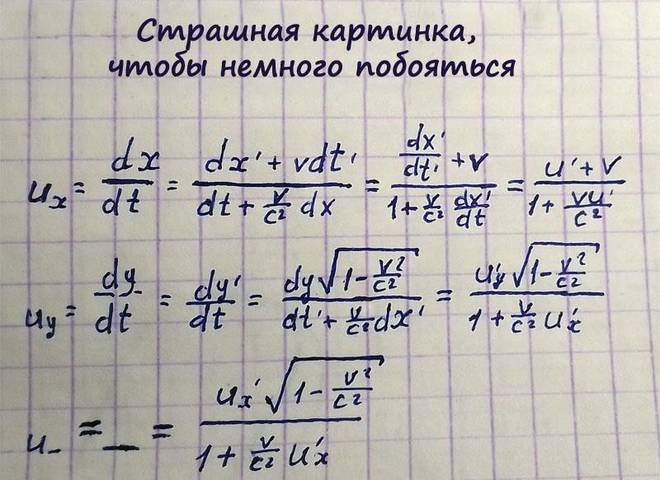 Страшная картинка,
чтобы немного побояться
uₓ = dx/dt = (dx' + vdt')/(dt + v/c² dx) = (dx'/dt' + v)/(1 + v/c² dx'/dt) = (u' + v)/(1 + vu'/c²)
u_y = dy/dt = dy'/dt = dy√(1 - v²/c²)/(dt' + v/c² dx') = u'y√(1 - v²/c²)/(1 + v/c² u'x)
u_ = _ = ux'√(1 - v²/c²)/(1 + v/c² u'x)